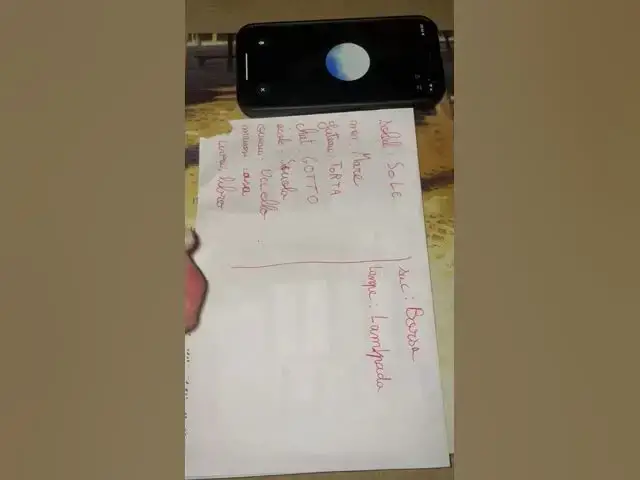 Soleil : SOLE
mer : Mare
gateau : TORTA
chat : GOTTO
ecole : Scuola
oiseau : Uccello
maison : casa
livre : libro
sac : Borsa
lampe : Lampada